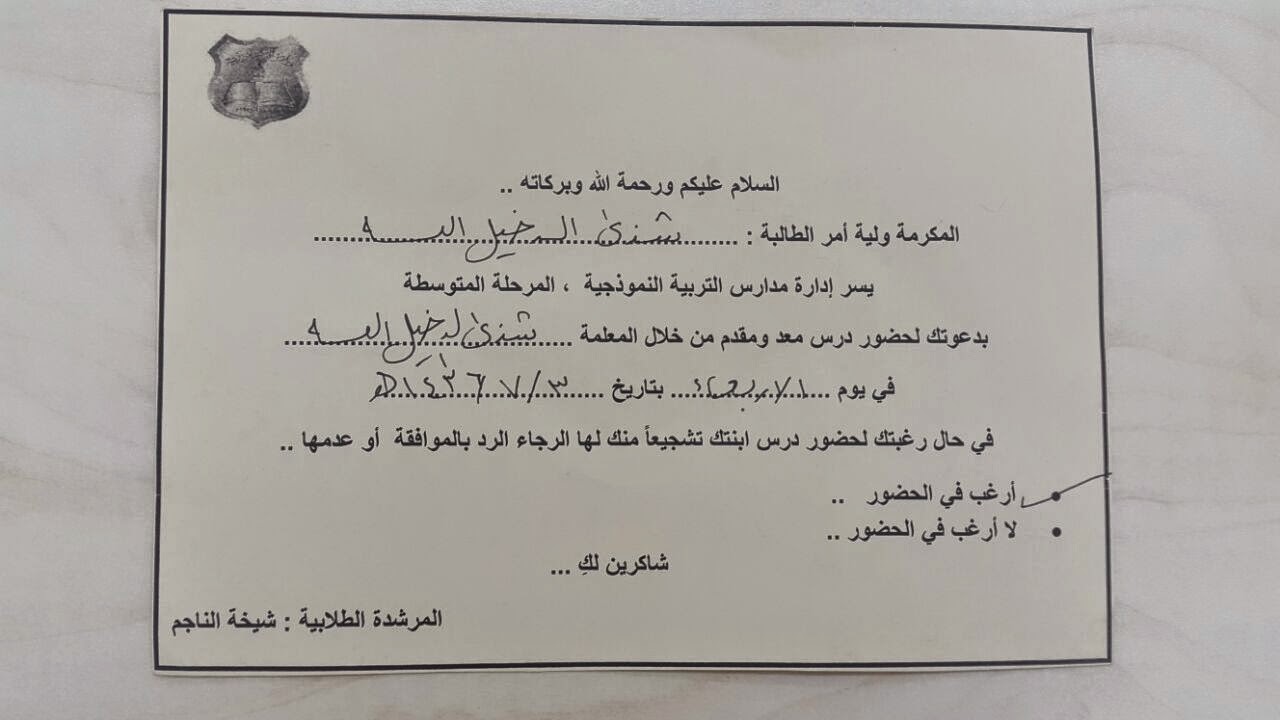 السلام عليكم ورحمة الله وبركاته ..
المكرمة ولية أمر الطالبة : شذى الدخيل الله
يسر إدارة مدارس التربية النموذجية ، المرحلة المتوسطة
بدعوتك لحضور درس معد ومقدم من خلال المعلمة شذى لدخيل الله
في يوم الاربعاء بتاريخ ٣/٧/١٤٣٦هـ
في حال رغبتك لحضور درس ابنتك تشجيعاً منك لها الرجاء الرد بالموافقة أو عدمها ..
• أرغب في الحضور ..
• لا أرغب في الحضور ..
شاكرين لكِ ...
المرشدة الطلابية : شيخة الناجم